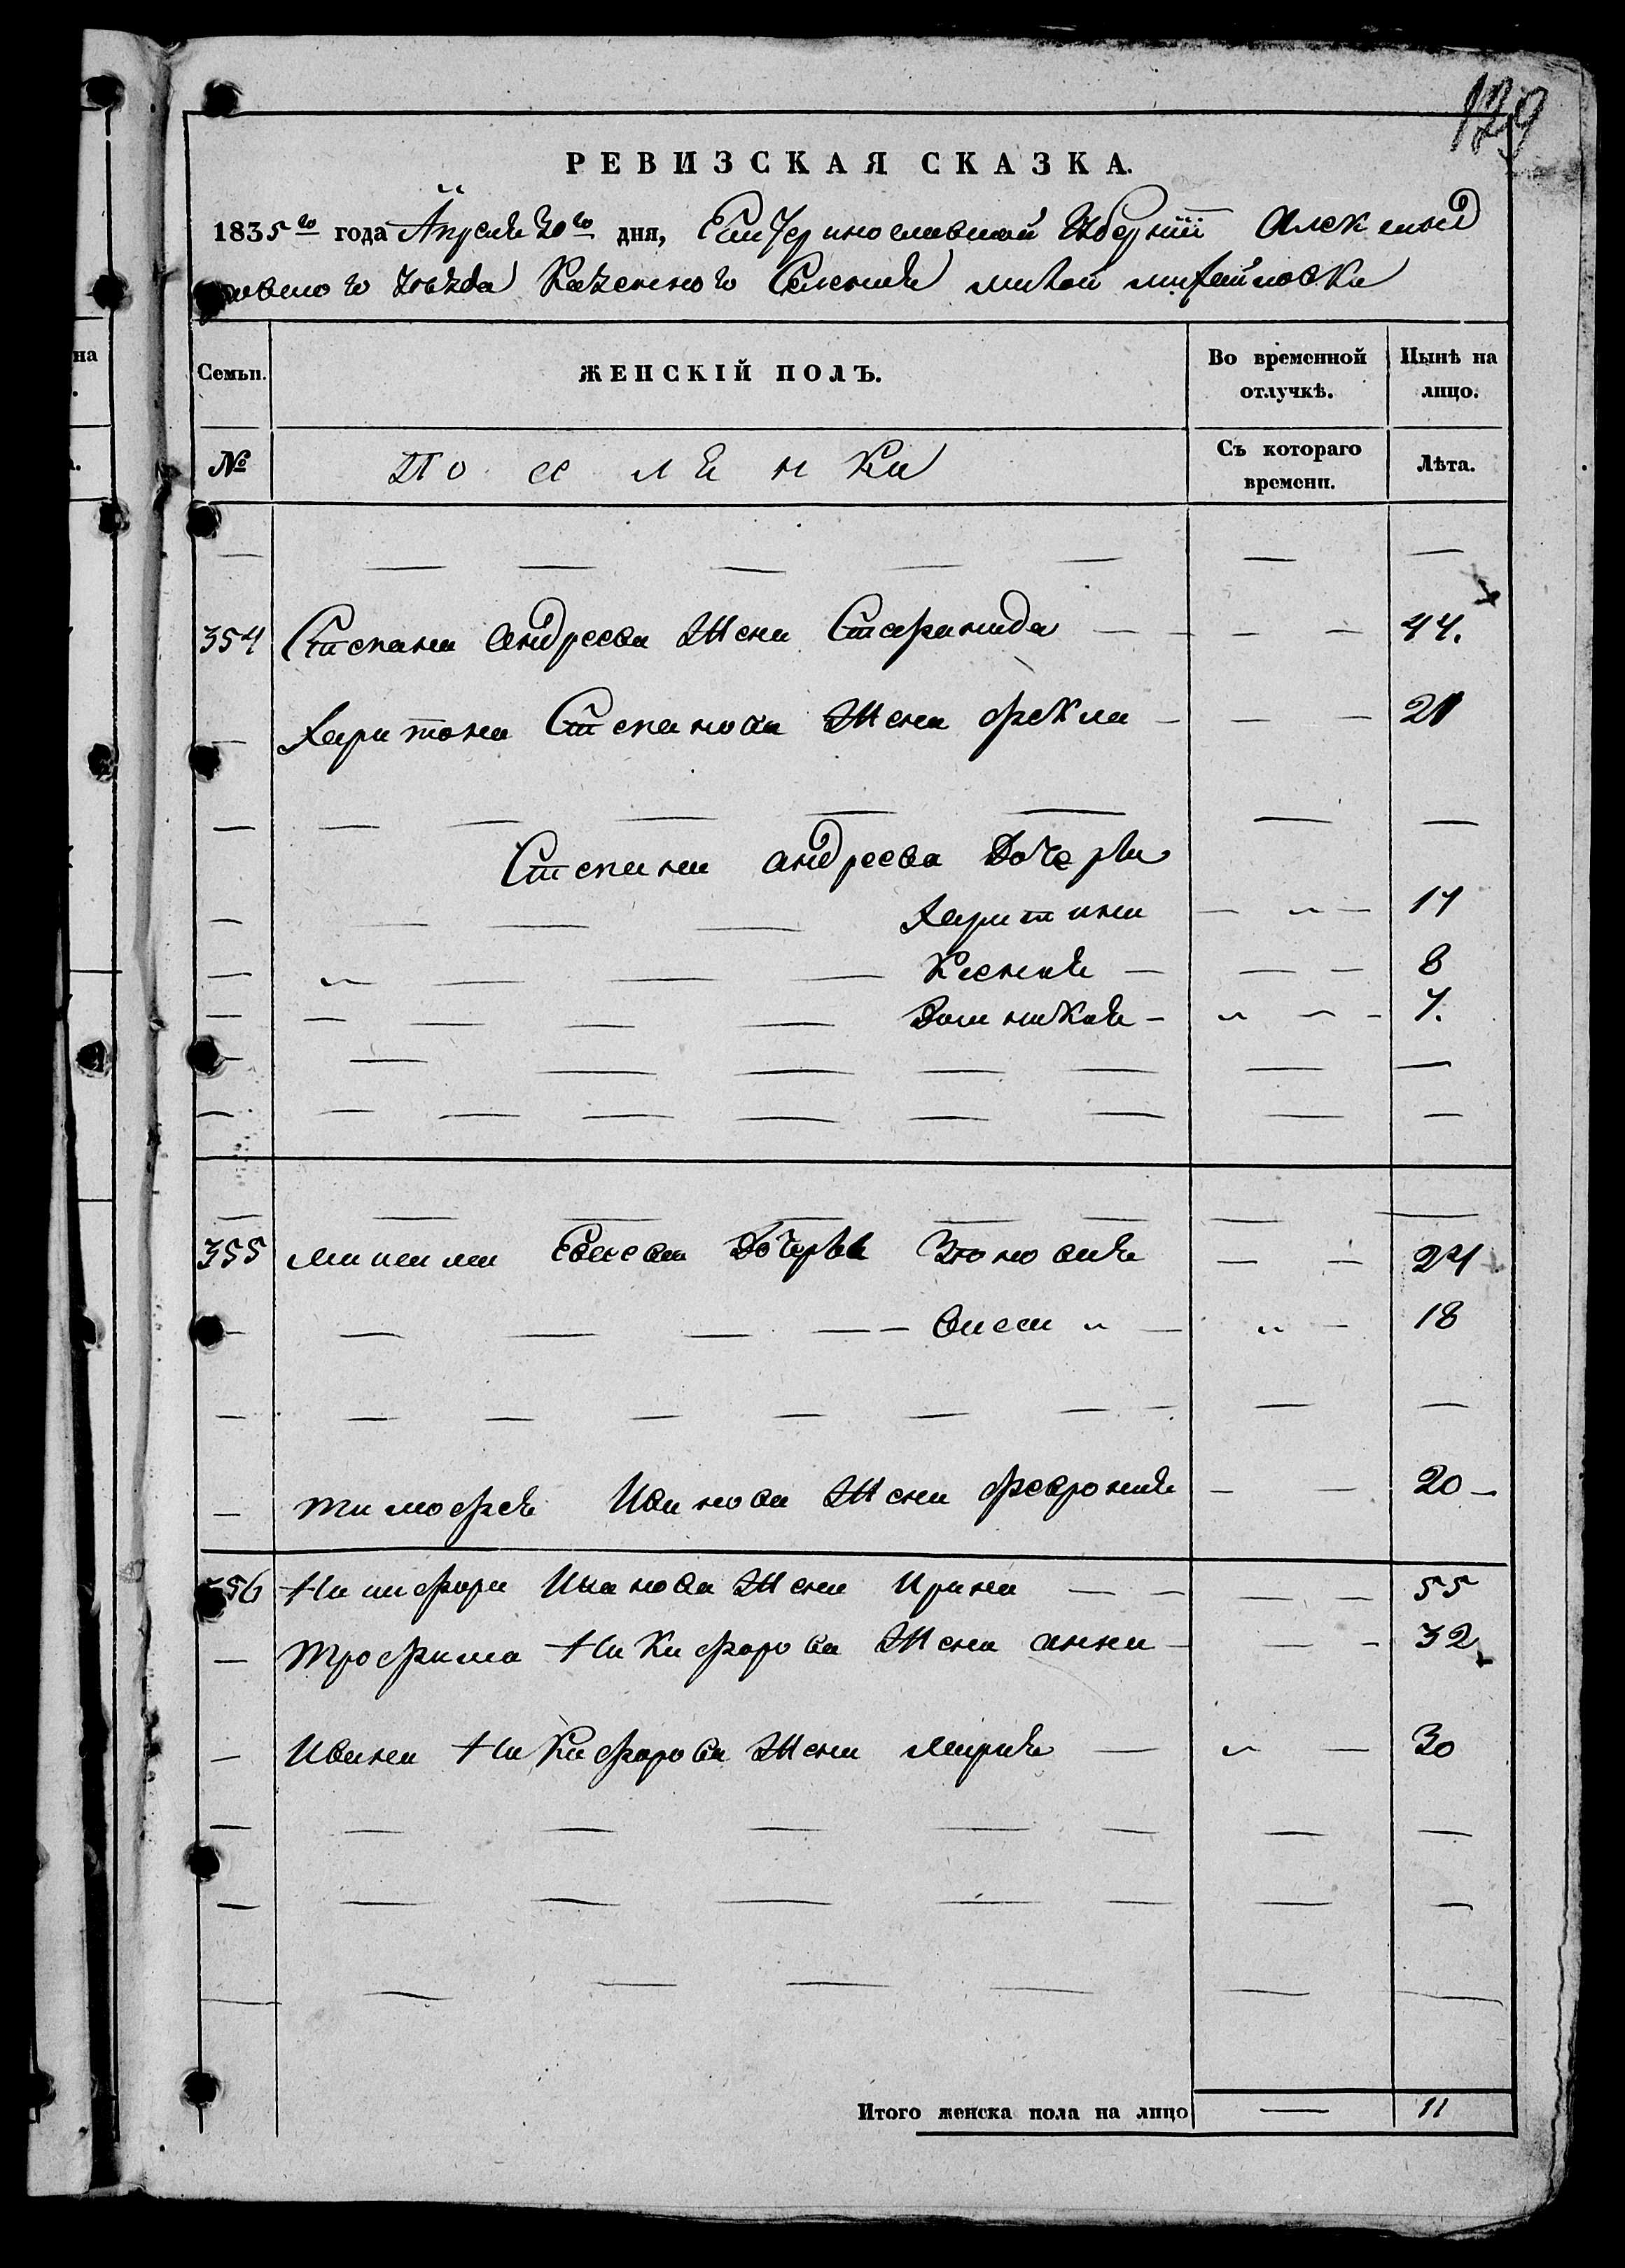 129
РЕВИЗСКАЯ СКАЗКА.
1835го года Апреля 20го дня, Екатеринославской Губернии Александ
ровского уезда Казенного Селения малой михайловки
на
Семьи. ЖЕНСКІЙ ПОЛЪ. Во временной отлучкѣ. Нынѣ на лицо.
№ Поселянки Съ котораго времени. Лѣта.
354 Степана андреева Жена Стефанида 44.
Харитона Степанова Жена фекла 21
Степана андреева Дочери
Харитина 14
Ксения 8
Домникия 4.
355 Дочери Зѣновия 24
Васса 18
тимофея Иванова Жена феврония 20
356 Никифора Иванова Жена Ирина 55
трофима Никифорова Жена анна 32
Ивана Никифорова Жена мария 30
Итого женска пола на лицо 11